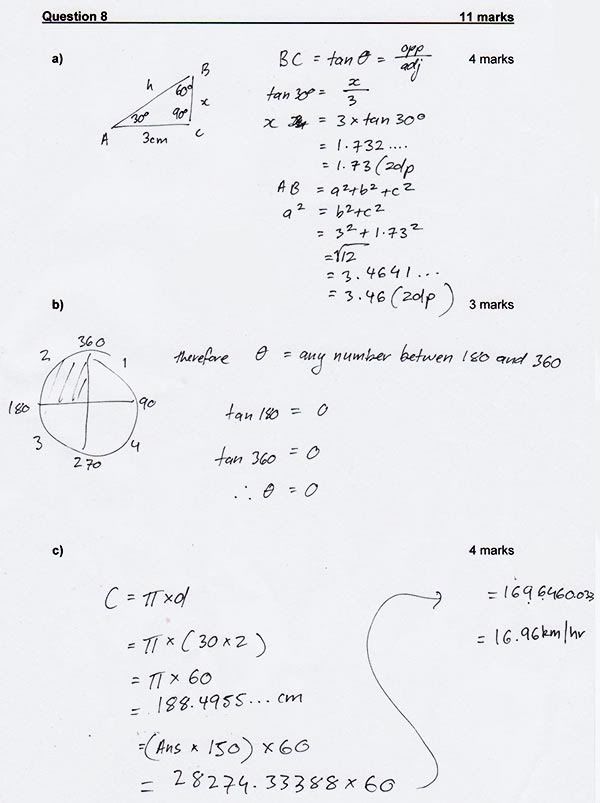 Question 8 11 marks
a) 4 marks
B
h 60° x
30° 90°
A 3cm C
BC = tan θ = opp/adj
tan 30° = x/3
x = 3 × tan 30°
= 1.732....
= 1.73 (2dp
AB = a²+b²+c²
a² = b²+c²
= 3² + 1.73²
= √12
= 3.4641...
= 3.46 (2dp)
b) 3 marks
360
2 1
180 90
3 4
270
therefore θ = any number betwen 180 and 360
tan 180 = 0
tan 360 = 0
∴ θ = 0
c) 4 marks
C = π×d
= π × (30 × 2)
= π × 60
= 188.4955... cm
= (Ans × 150) × 60
= 28274.33388 × 60
= 1696460.033
= 16.96km/hr